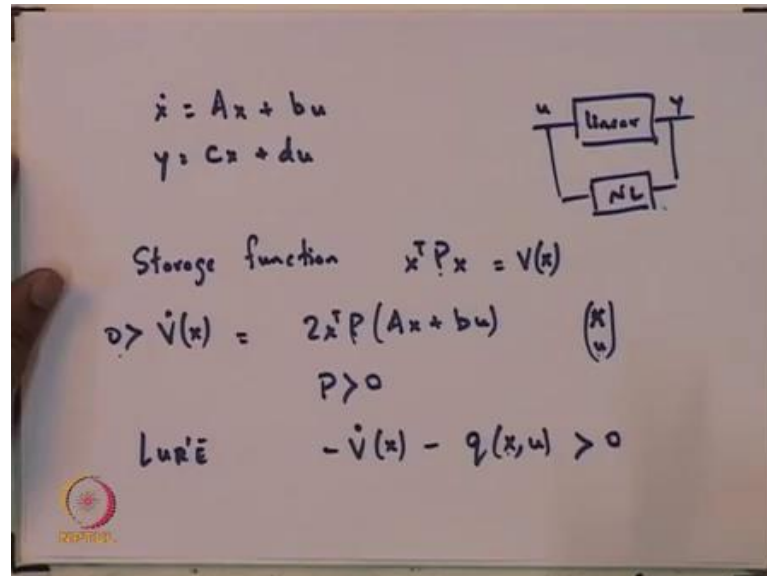 ẋ = Ax + bu
y = Cx + du
u linear y
NL
Storage function xᵀPx = V(x)
0 > V̇(x) = 2xᵀP(Ax + bu) (x u)
P > 0
LUR'E - V̇(x) - q(x,u) > 0
NPTEL